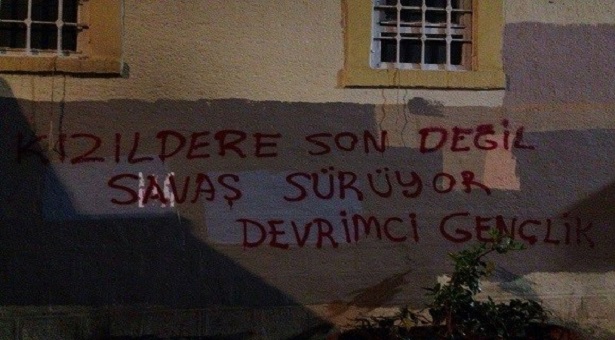 KIZILDERE SON DEĞİL
SAVAŞ SÜRÜYOR
DEVRİMCİ GENÇLİK